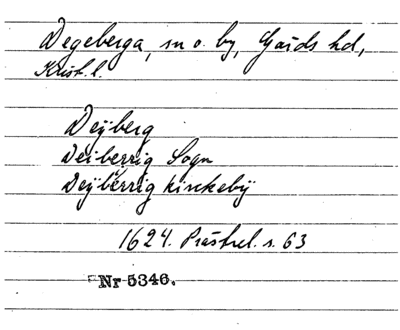 Degeberga, sn o. by, Gärds hd,
Krist. l.
Deÿberg
Deiberrig Sogn
Deÿberrig kirckebÿ
1624. Prästrel. s. 63
Nr 5346.